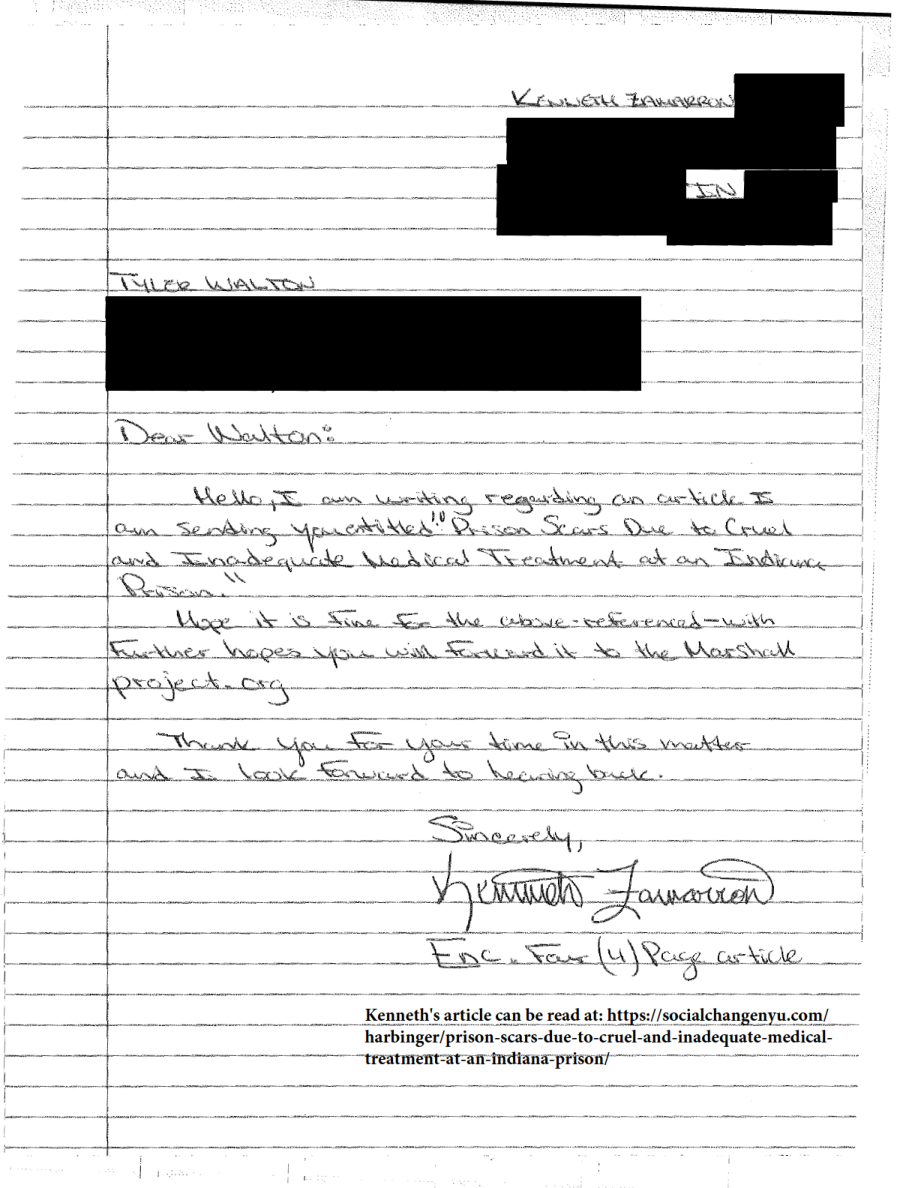 KENNETH ZAMARRON
IN
TYLER WALTON
Dear Walton:
Hello, I am writing regarding an article I
am sending you entitled "Prison Scars Due to Cruel
and Inadequate Medical Treatment at an Indiana
Prison."
Hope it is fine for the above-referenced-with
further hopes you will forward it to the Marshall
project.org
Thank you for your time in this matter
and I look forward to hearing back.
Sincerely,
Kenneth Zamarron
Enc. Four (4) Page article
Kenneth's article can be read at: https://socialchangenyu.com/
harbinger/prison-scars-due-to-cruel-and-inadequate-medical-
treatment-at-an-indiana-prison/